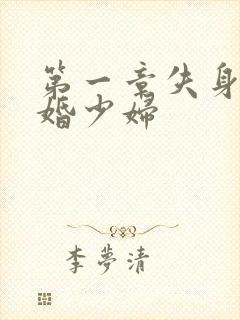 第一章失身
婚少婦
李夢清